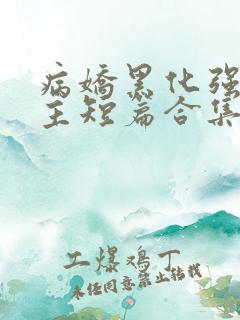 病娇黑化强
主短篇合集
工爆鸡丁
未经同意禁止转载